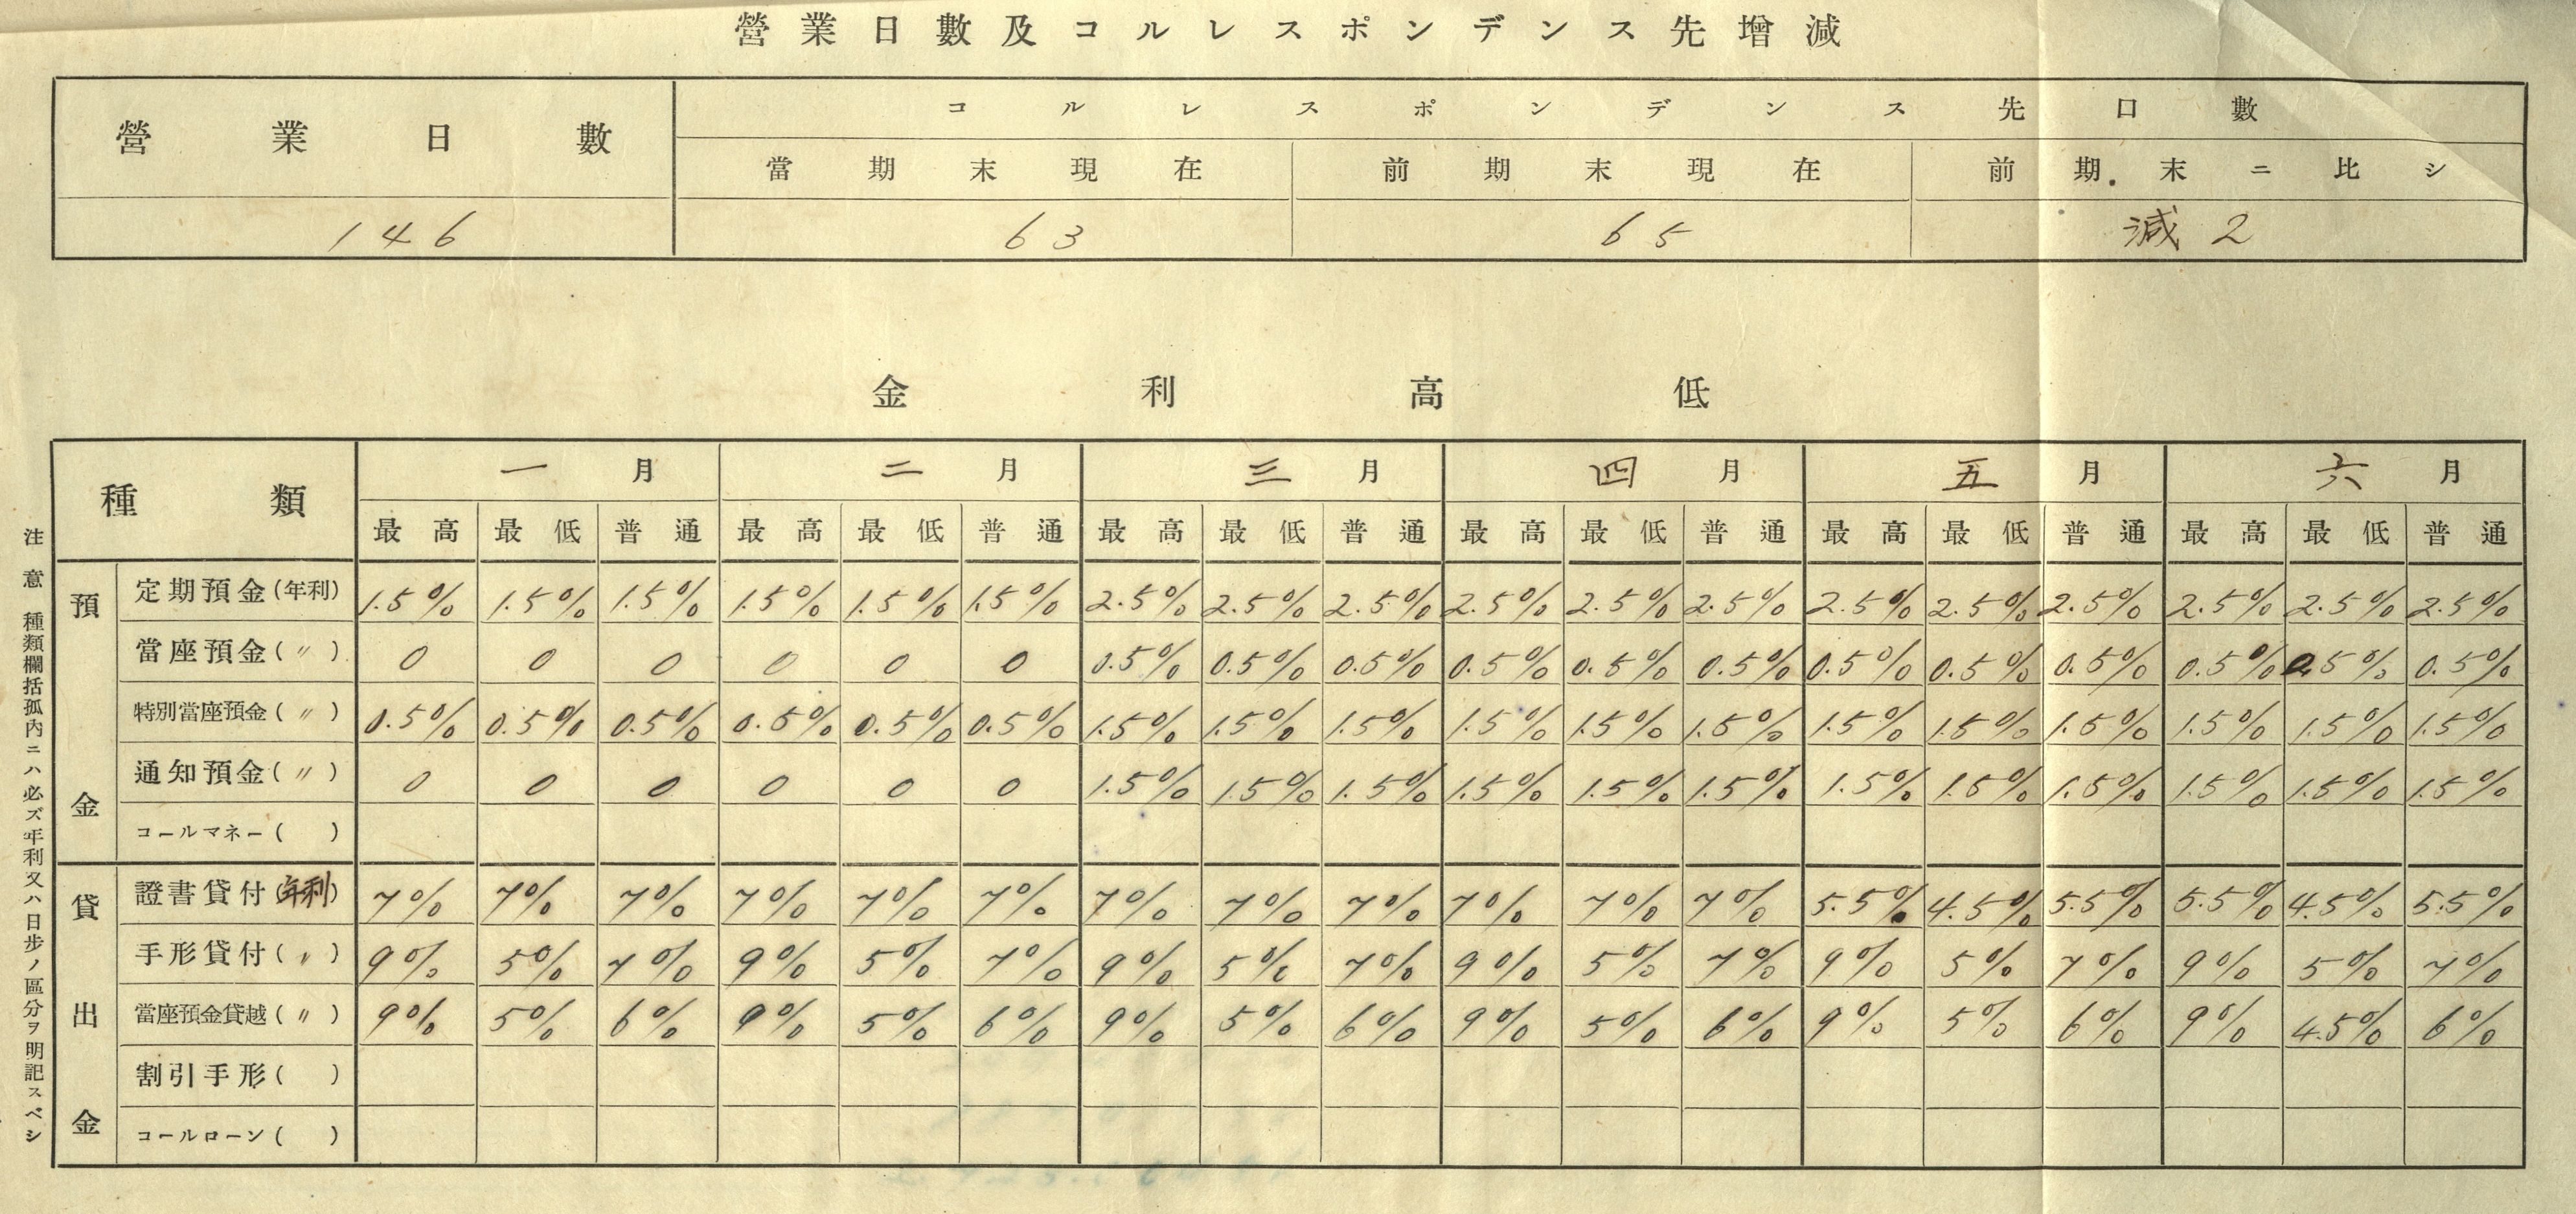 營業日數及コルレスポンデンス先增減
營業日數 コルレスポンデンス先口數
當期末現在 前期末現在 前期末ニ比シ
146 63 65 減2
金利高低
種類 一月 二月 三月 四月 五月 六月
最高 最低 普通 最高 最低 普通 最高 最低 普通 最高 最低 普通 最高 最低 普通 最高 最低 普通
預金
定期預金(年利) 1.5% 1.5% 1.5% 1.5% 1.5% 1.5% 2.5% 2.5% 2.5% 2.5% 2.5% 2.5% 2.5% 2.5% 2.5% 2.5% 2.5% 2.5%
當座預金(〃) 0 0 0 0 0 0 0.5% 0.5% 0.5% 0.5% 0.5% 0.5% 0.5% 0.5% 0.5% 0.5% 0.5% 0.5%
特別當座預金(〃) 0.5% 0.5% 0.5% 0.5% 0.5% 0.5% 1.5% 1.5% 1.5% 1.5% 1.5% 1.5% 1.5% 1.5% 1.5% 1.5% 1.5% 1.5%
通知預金(〃) 0 0 0 0 0 0 1.5% 1.5% 1.5% 1.5% 1.5% 1.5% 1.5% 1.5% 1.5% 1.5% 1.5% 1.5%
コールマネー( )
貸出金
證書貸付(年利) 7% 7% 7% 7% 7% 7% 7% 7% 7% 7% 7% 7% 5.5% 4.5% 5.5% 5.5% 4.5% 5.5%
手形貸付(〃) 9% 5% 7% 9% 5% 7% 9% 5% 7% 9% 5% 7% 9% 5% 7% 9% 5% 7%
當座預金貸越(〃) 9% 5% 6% 9% 5% 6% 9% 5% 6% 9% 5% 6% 9% 5% 6% 9% 4.5% 6%
割引手形( )
コールローン( )
注意 種類欄括孤內ニハ必ズ年利又ハ日步ノ區分ヲ明記スベシ